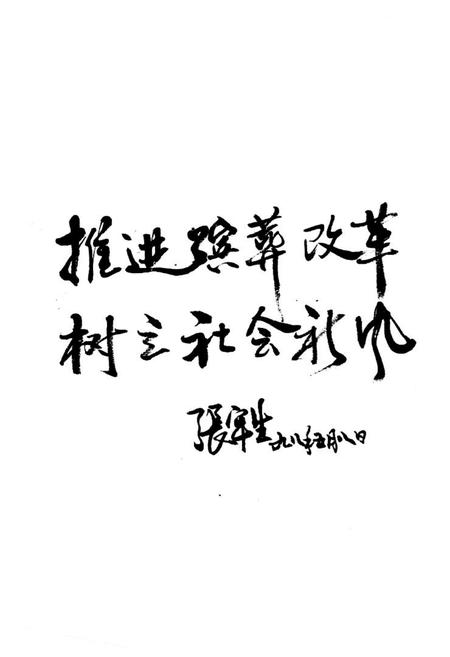 推进殡葬改革
树立社会新风
張军生九八年五月八日